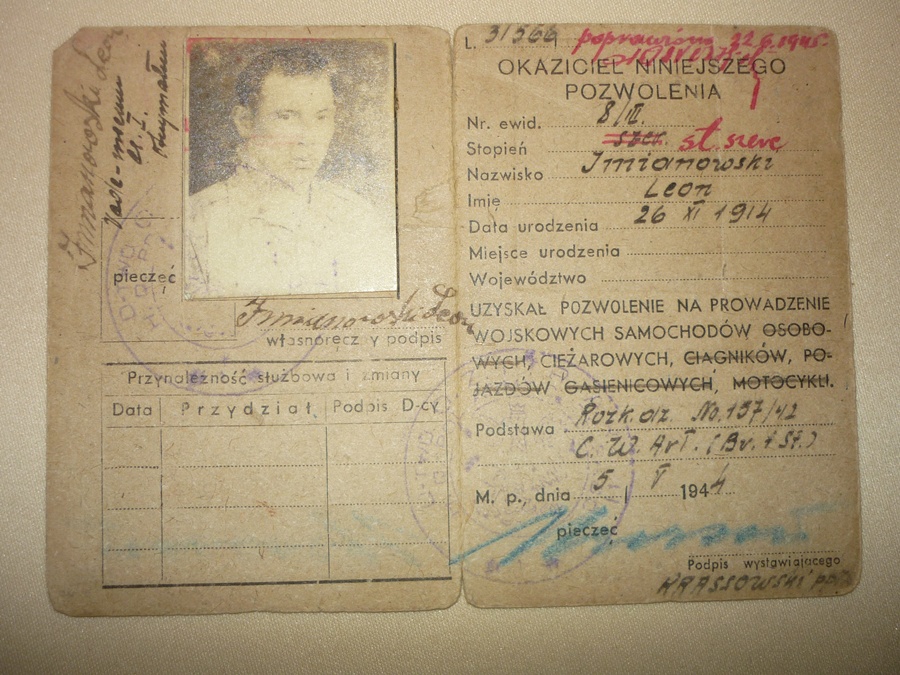 Imianowski Leon
Vade-mecum
cz. I.
otrzymałem
pieczęć
Imianowski Leon
własnoręczny podpis
Przynależność służbowa i zmiany
Data Przydział Podpis D-cy
L. 31566 poprawiono 22.6.1945
OKAZICIEL NINIEJSZEGO
POZWOLENIA
Nr. ewid. 8/III.
Stopień szer. st. szere
Nazwisko Imianowski
Imię Leon
Data urodzenia 26 XI 1914
Miejsce urodzenia
Województwo
UZYSKAŁ POZWOLENIE NA PROWADZENIE
WOJSKOWYCH SAMOCHODÓW OSOBO-
WYCH, CIĘŻAROWYCH, CIĄGNIKÓW, PO-
JAZDÓW GĄSIENICOWYCH, MOTOCYKLI.
Podstawa Rozk. dz. No. 137/42
C. W. Art. (Br. i Sł.)
M. p., dnia 5 V 1944
pieczęć
Podpis wystawiającego
KRASSOWSKI